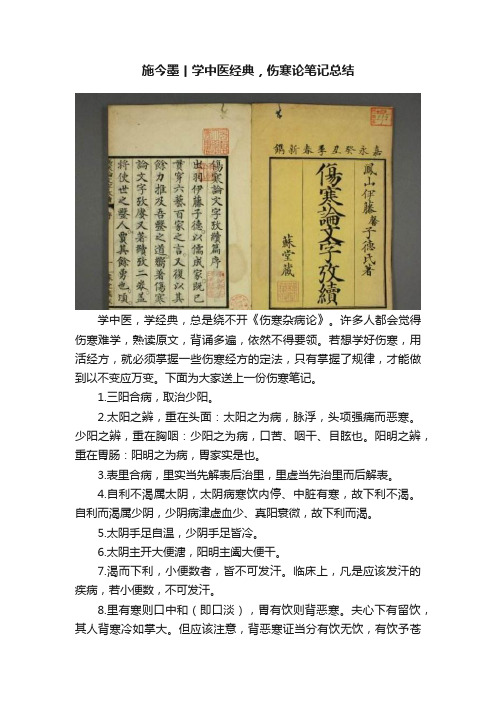 施今墨 | 学中医经典，伤寒论笔记总结
嘉永癸丑季春新鐫
鳳山伊藤馨子德氏著
傷寒論文字攷續
蘇堂藏
傷寒論文字攷續篇序
出羽伊藤子德以儒成家既已
貫穿六藝百家之言又復以其
餘力推及吾醫之道嚮著傷寒
論文字攷又著續攷二卷蓋
將使世之醫人賈其餘勇也頃
学中医，学经典，总是绕不开《伤寒杂病论》。许多人都会觉得
伤寒难学，熟读原文，背诵多遍，依然不得要领。若想学好伤寒，用
活经方，就必须掌握一些伤寒经方的定法，只有掌握了规律，才能做
到以不变应万变。下面为大家送上一份伤寒笔记。
1.三阳合病，取治少阳。
2.太阳之辨，重在头面：太阳之为病，脉浮，头项强痛而恶寒。
少阳之辨，重在胸咽：少阳之为病，口苦、咽干、目眩也。阳明之辨，
重在胃肠：阳明之为病，胃家实是也。
3.表里合病，里实当先解表后治里，里虚当先治里而后解表。
4.自利不渴属太阴，太阴病寒饮内停、中脏有寒，故下利不渴。
自利而渴属少阴，少阴病津虚血少、真阳衰微，故下利而渴。
5.太阴手足自温，少阴手足皆冷。
6.太阴主开大便溏，阳明主阖大便干。
7.渴而下利，小便数者，皆不可发汗。临床上，凡是应该发汗的
疾病，若小便数，不可发汗。
8.里有寒则口中和（即口淡），胃有饮则背恶寒。夫心下有留饮，
其人背寒冷如掌大。但应该注意，背恶寒证当分有饮无饮，有饮予苍